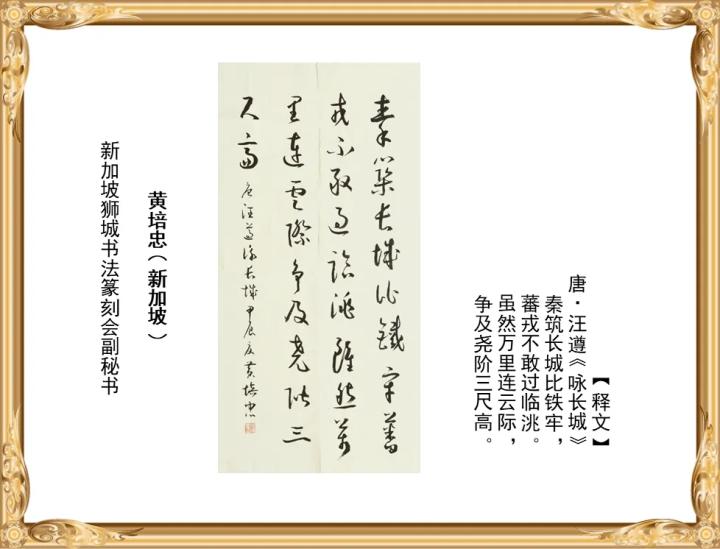 【释文】
唐·汪遵《咏长城》
秦筑长城比铁牢，
蕃戎不敢过临洮。
虽然万里连云际，
争及尧阶三尺高。
秦筑长城比铁牢蕃
戎不敢过临洮雖然万
里连云际争及尧阶三
尺高 唐汪遵咏长城 甲辰夏黄培忠
黄培忠（新加坡）
新加坡狮城书法篆刻会副秘书